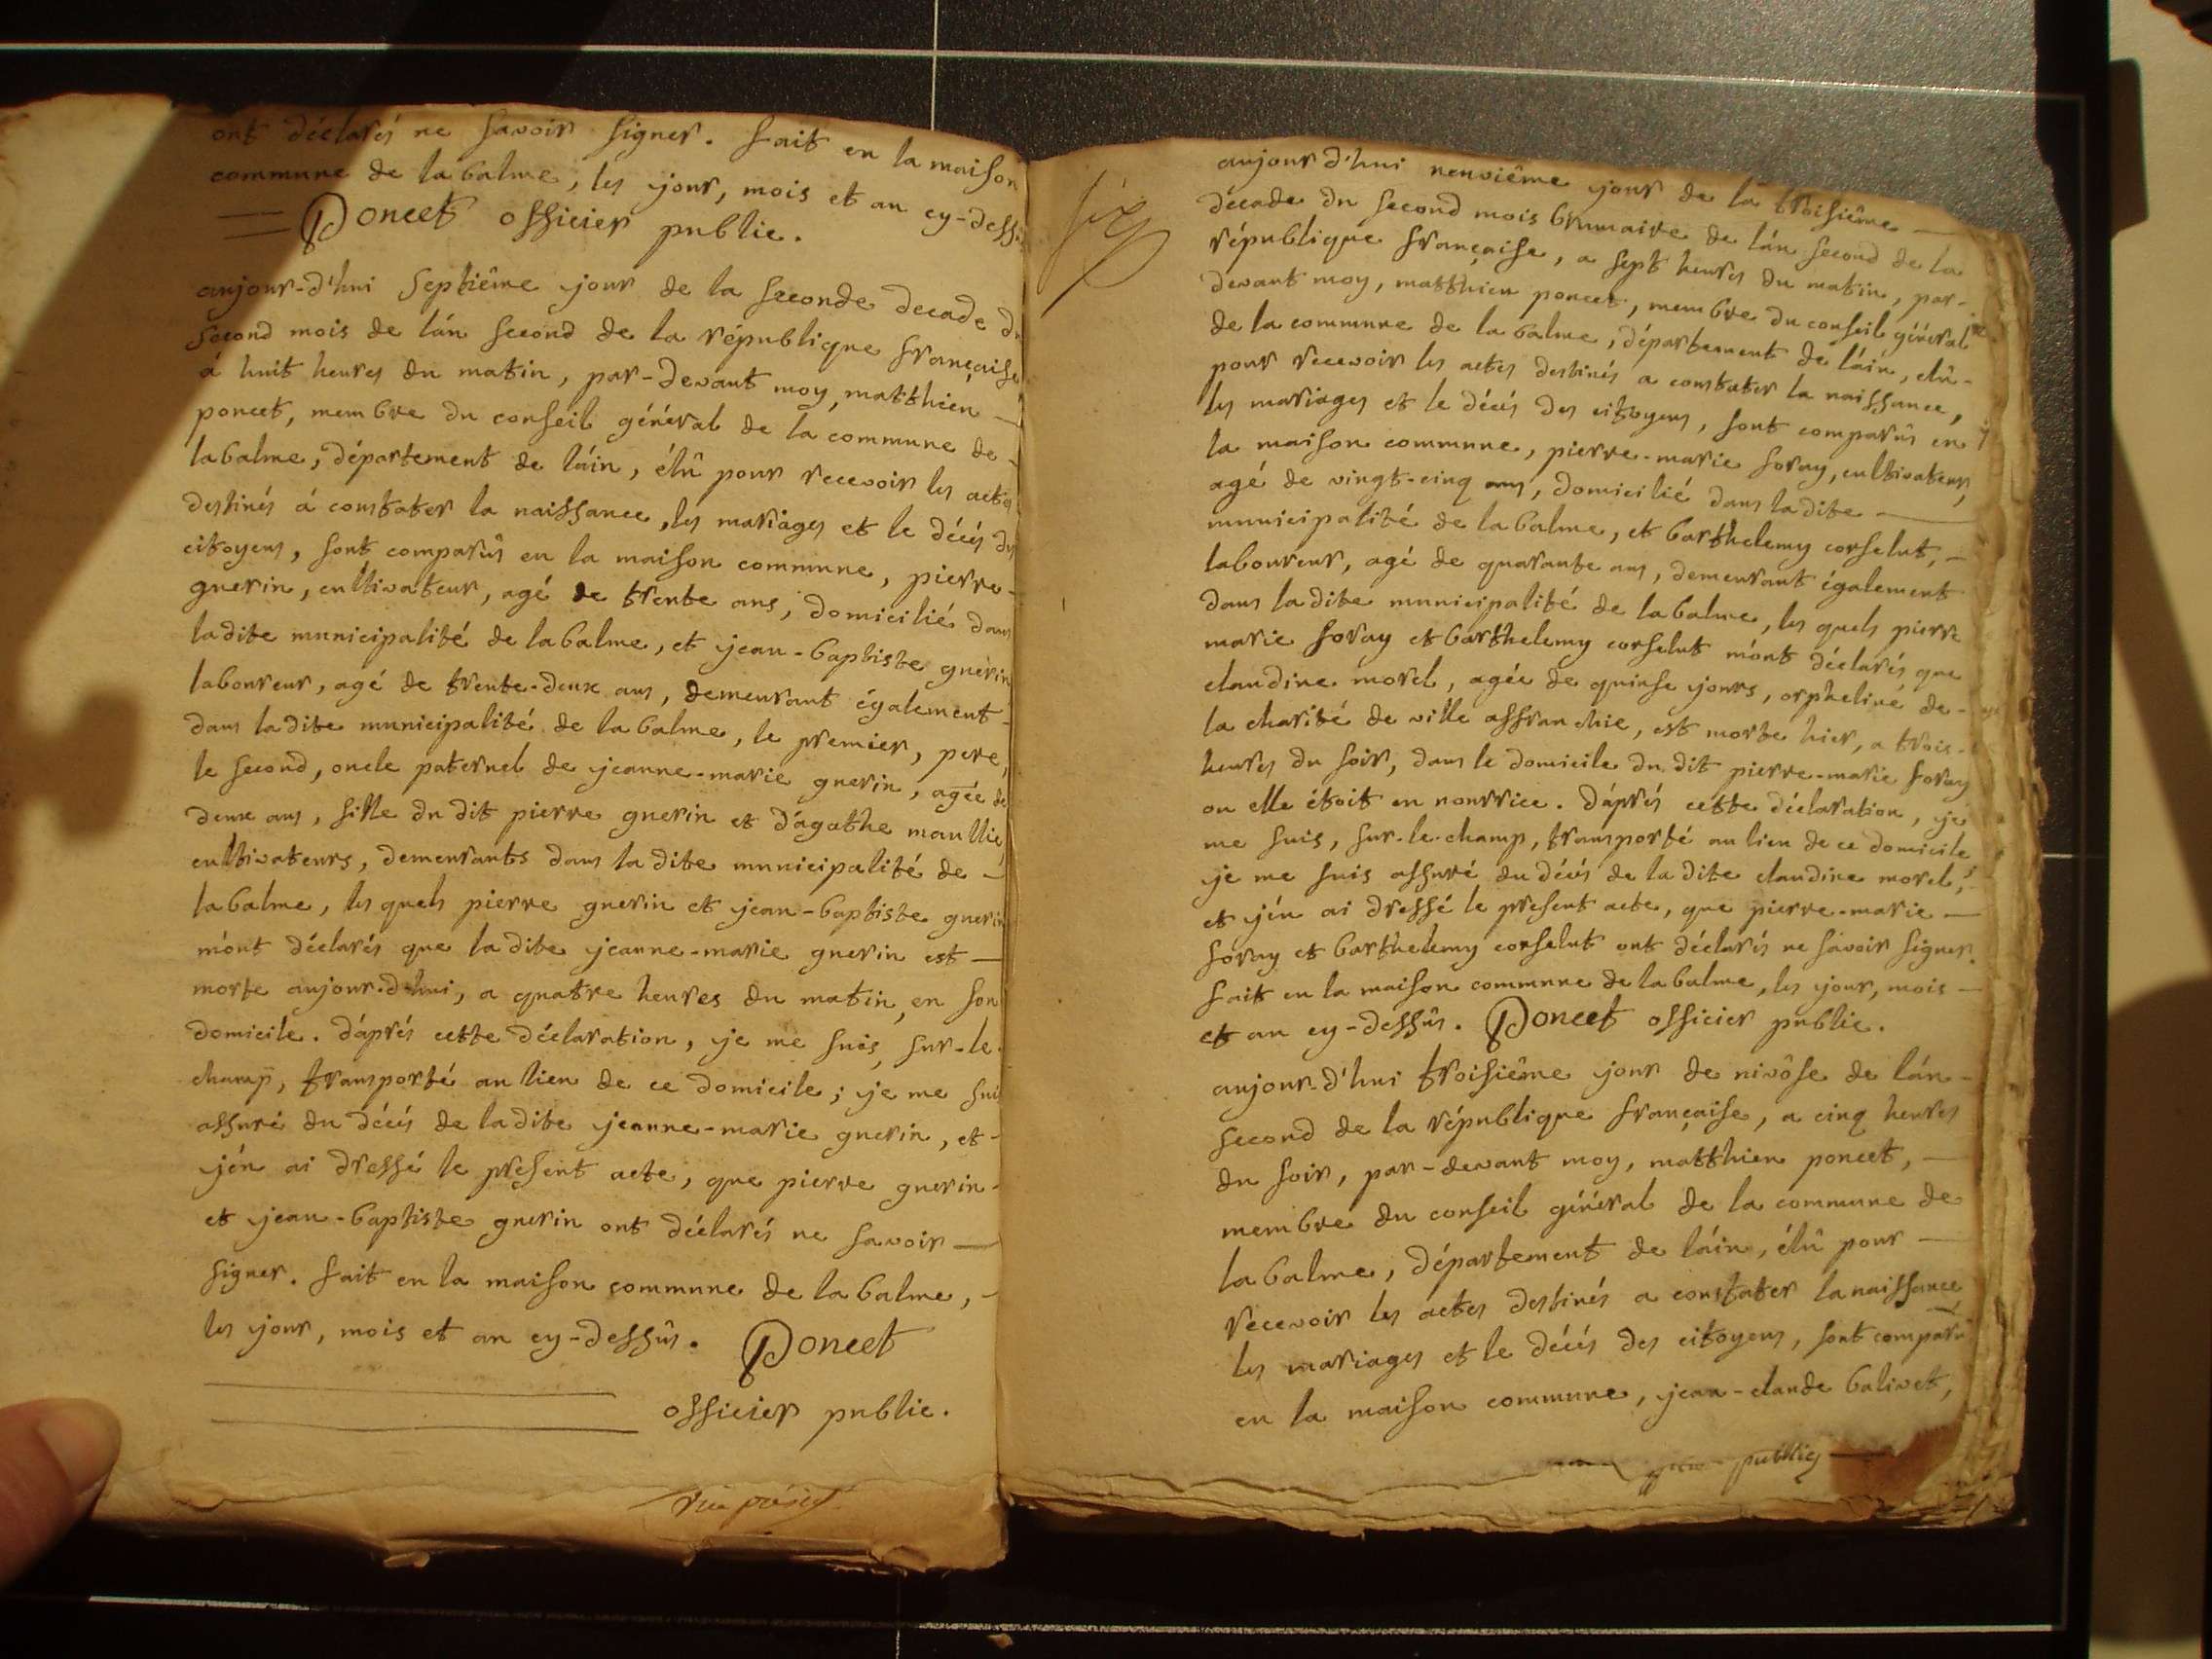 ont déclarés ne savoir signer. fait en la maison
commune de la balme, les jour, mois et an cy-dess
Poncet officier public.
aujour-d'hui septiême jour de la seconde decade du
second mois de l'án second de la république française
á huit heures du matin, par-devant moy, matthieu
poncet, membre du conseil général de la commune de
la balme, département de l'áin, élû pour recevoir les actes
destinés á constater la naissance, les mariages et le décés des
citoyens, sont comparûs en la maison commune, pierre-
guerin, cultivateur, agé de trente ans, domicilié dans
la dite municipalité de la balme, et jean-baptiste guerin
laboureur, agé de trente-deux ans, demeurant également
dans la dite municipalité de la balme, le premier, pere,
le second, oncle paternel de jeanne-marie guerin, agée de
deux ans, fille du dit pierre guerin et d'ágathe maullie
cultivateurs, demeurants dans la dite municipalité de
la balme, les quels pierre guerin et jean-baptiste guerin
m'ónt déclarés que la dite jeanne-marie guerin est
morte aujour-d'hui, a quatre heures du matin, en son
domicile. d'áprés cette déclaration, je me suis, sur-le-
champ, transporté au lieu de ce domicile; je me sui
assuré du décés de la dite jeanne-marie guerin, et
j'én ai dressé le present acte, que pierre guerin-
et jean-baptiste guerin ont déclarés ne savoir
signer. fait en la maison commune de la balme,
les jour, mois et an cy-dessûs. Poncet
officier public.
six
aujour d'hui neuviême jour de la troisiême
décade du second mois brumaire de l'án second de la
république française, a sept heures du matin, par-
devant moy, matthieu poncet, membre du conseil général
de la commune de la balme, département de l'áin, elû-
pour recevoir les actes destinés a constater la naissance,
les mariages et le décés des citoyens, sont comparûs en
la maison commune, pierre-marie foray, cultivateur,
agé de vingt-cinq ans, domicilié dans la dite
municipalité de la balme, et barthelemy corselut,
laboureur, agé de quarante ans, demeurant également
dans la dite municipalité de la balme, les quels pierre
marie foray et barthelemy corselut m'ónt déclarés que
claudine morel, agée de quinse jours, orpheline de-
la charité de ville affranchie, est morte hier, a trois-
heures du soir, dans le domicile du dit pierre-marie foray
ou elle étoit en nourrice. d'áprés cette déclaration, je
me suis, sur-le-champ, transporté au lieu de ce domicile
je me suis assuré du décés de la dite claudine morel,
et j'én ai dressé le present acte, que pierre-marie
foray et barthelemy corselut ont déclarés ne savoir signer.
fait en la maison commune de la balme, les jour, mois
et an cy-dessûs. Poncet officier public.
aujour-d'hui troisiême jour de nivôse de l'án-
second de la république française, a cinq heures
du soir, par-devant moy, matthieu poncet,
membre du conseil général de la commune de
la balme, département de l'áin, élû pour
recevoir les actes destinés a constater la naissance
les mariages et le décés des citoyens, sont comparû
en la maison commune, jean-claude balivet,
public